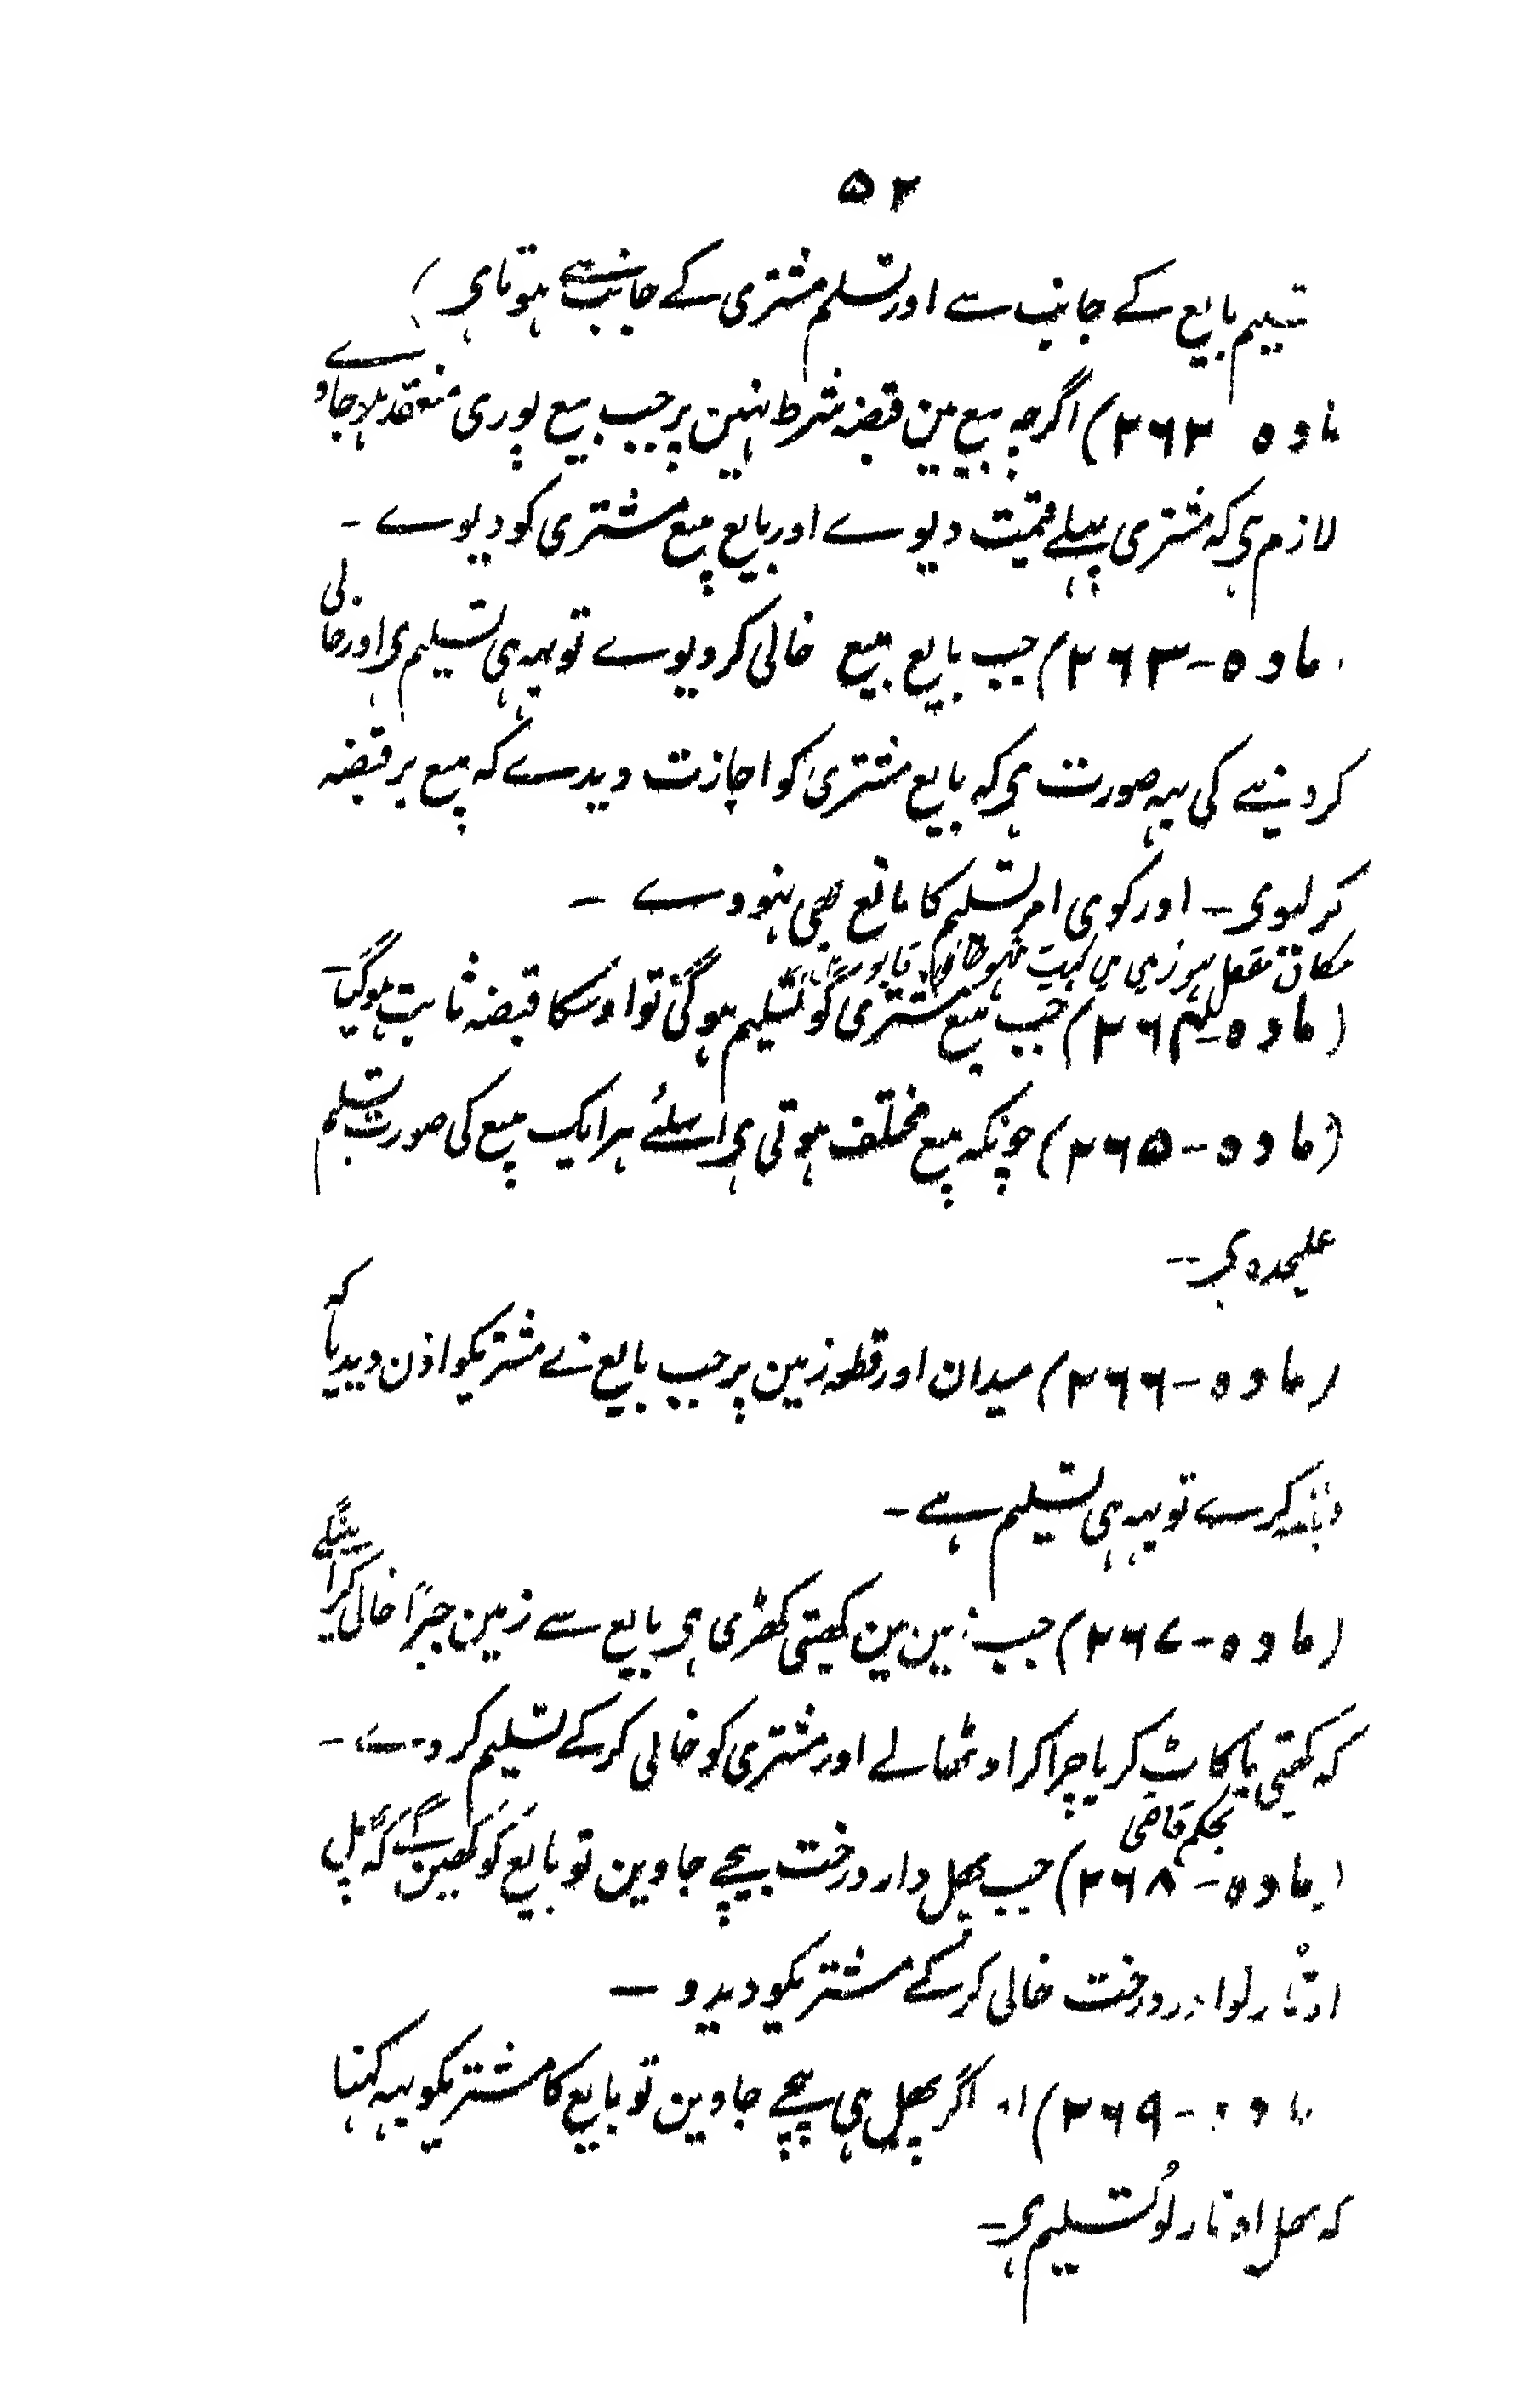 ۵۲
تسلیم بایع کے جانب سے اور تسلم مشتری کے جانب سے ہوتا ہی )
مادہ ۲۶۲) اگرچہ بیع مین قبضہ شرط نہین پر جب بیع پوری منعقد ہو جاوے
لازم ہی کہ مشتری پہلے قیمت دیوے اور بایع مبیع مشتری کو دیوے ۔
مادہ ۔ ۲۶۳) جب بایع مبیع خالی کر دیوے تو یہہ ہی تسلیم ہی اور خالی
کر دینے کی یہہ صورت ہی کہ بایع مشتری کو اجازت دیدے کہ مبیع پر قبضہ
کر لیوی ۔ اور کوی امر تسلیم کا مانع بھی نہووے ۔
مکان مقفل ہو زمین مین کہیت
(مادہ ۔ ۲۶۴) جب مبیع مشتری کو تسلیم ہو گئی تو اوسکا قبضہ ثابت ہو گیا ۔
(مادہ ۔ ۲۶۵) چونکہ مبیع مختلف ہوتی ہی اسلئے ہر ایک مبیع کی صورت تسلیم
علیحدہ ہی ۔
(مادہ ۔ ۲۶۶) میدان اور قطعہ زمین پر جب بایع نے مشتریکو اذن دیدیا کہ
قبضہ کرے تو یہہ ہی تسلیم ہے ۔
(مادہ ۔ ۲۶۷) جب زمین مین کھیتی کھڑی ہی بایع سے زمین جبراً خالی کرا
کہ کھیتی یا کاٹ کر یا چرا کر اوٹھالے اور مشتری کو خالی کر کے تسلیم کر دے ۔
بحکم قاضی
(مادہ ۔ ۲۶۸) جب پھل دار درخت بیچے جاوین تو بایع کو کہین گے کہ پھل
اوتار لو اور درخت خالی کر کے مشتریکو دیدو ۔
مادہ ۔ ۲۶۹) اگر پھل ہی بیچے جاوین تو بایع کا مشتریکو یہہ کہنا
کہ پھل اوتار لو تسلیم ہی ۔